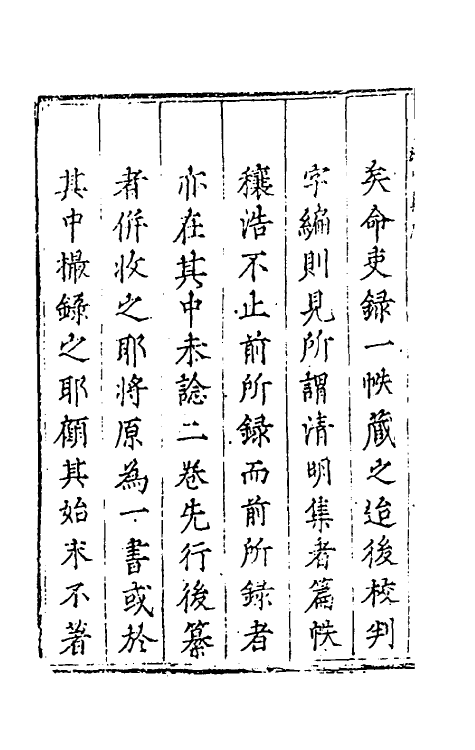 矣命吏録一帙藏之迨後校判
字編則見所謂清明集者篇帙
穰浩不止前所録而前所録者
亦在其中未諗二卷先行後纂
者併收之耶將原為一書或於
其中撮録之耶顧其始末不著